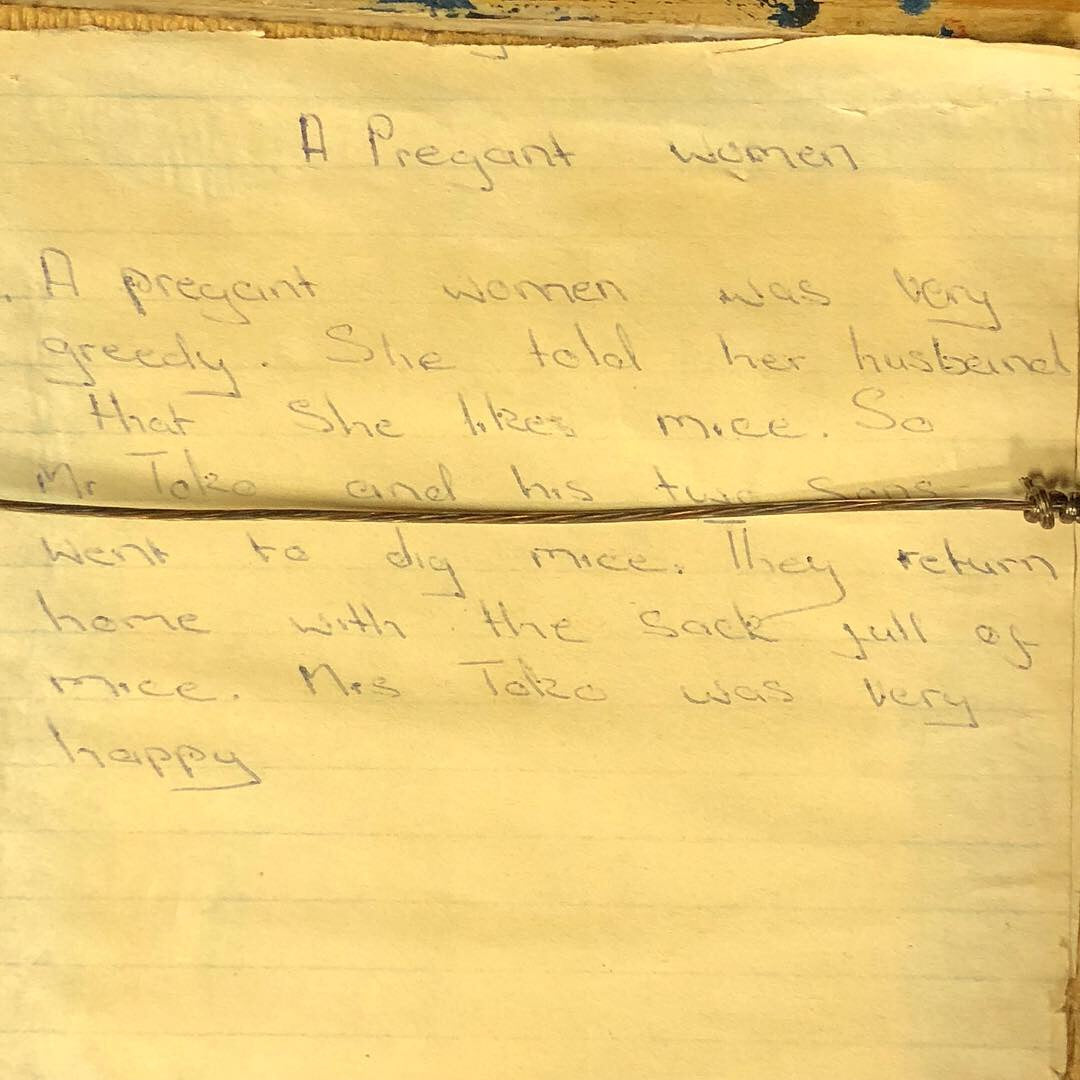 A Pregant women
A pregant women was very
greedy. She told her husband
that she likes mice. So
Mr Toko and his two sons
went to dig mice. They return
home with the sack full of
mice. Mrs Toko was very
happy